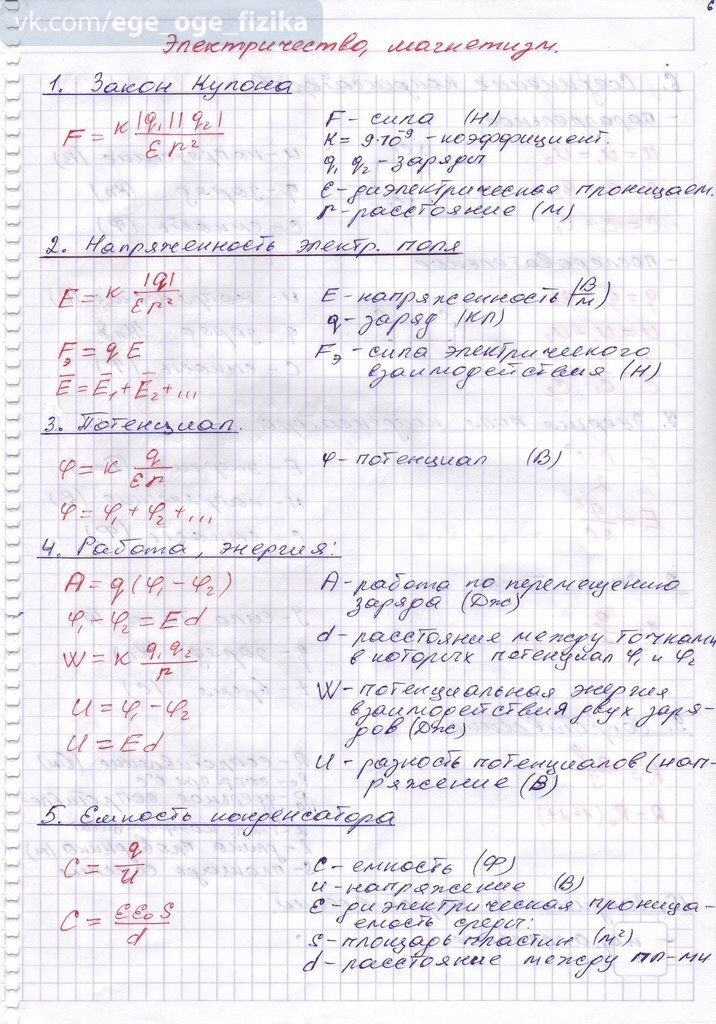 vk.com/ege_oge_fizika
6
Электричество, магнетизм.
1. Закон Кулона
F = к |q₁| |q₂| / ε r²
F - сила (Н)
к = 9·10⁻⁹ - коэффициент.
q₁ q₂ - заряды
ε - диэлектрическая проницаем.
r - расстояние (м)
2. Напряженность электр. поля
E = к |q| / ε r²
E - напряженность (В/м)
q - заряд (Кл)
Fэ = q E
Fэ - сила электрического
взаимодействия (Н)
E̅ = E̅₁ + E̅₂ + ...
3. Потенциал.
φ = к q / ε r
φ - потенциал (В)
φ = φ₁ + φ₂ + ...
4. Работа, энергия:
A = q (φ₁ - φ₂)
A - работа по перемещению
заряда (Дж)
φ₁ - φ₂ = E d
d - расстояние между точками
в которых потенциал φ₁ и φ₂
W = к q₁ q₂ / r
W - потенциальная энергия
взаимодействия двух заря-
дов (Дж)
U = φ₁ - φ₂
U = E d
U - разность потенциалов (нап-
ряжение (В)
5. Емкость конденсатора
C = q / U
C - емкость (Ф)
U - напряжение (В)
C = ε ε₀ S / d
ε - диэлектрическая проница-
емость среды:
S - площадь пластин (м²)
d - расстояние между пл-ми